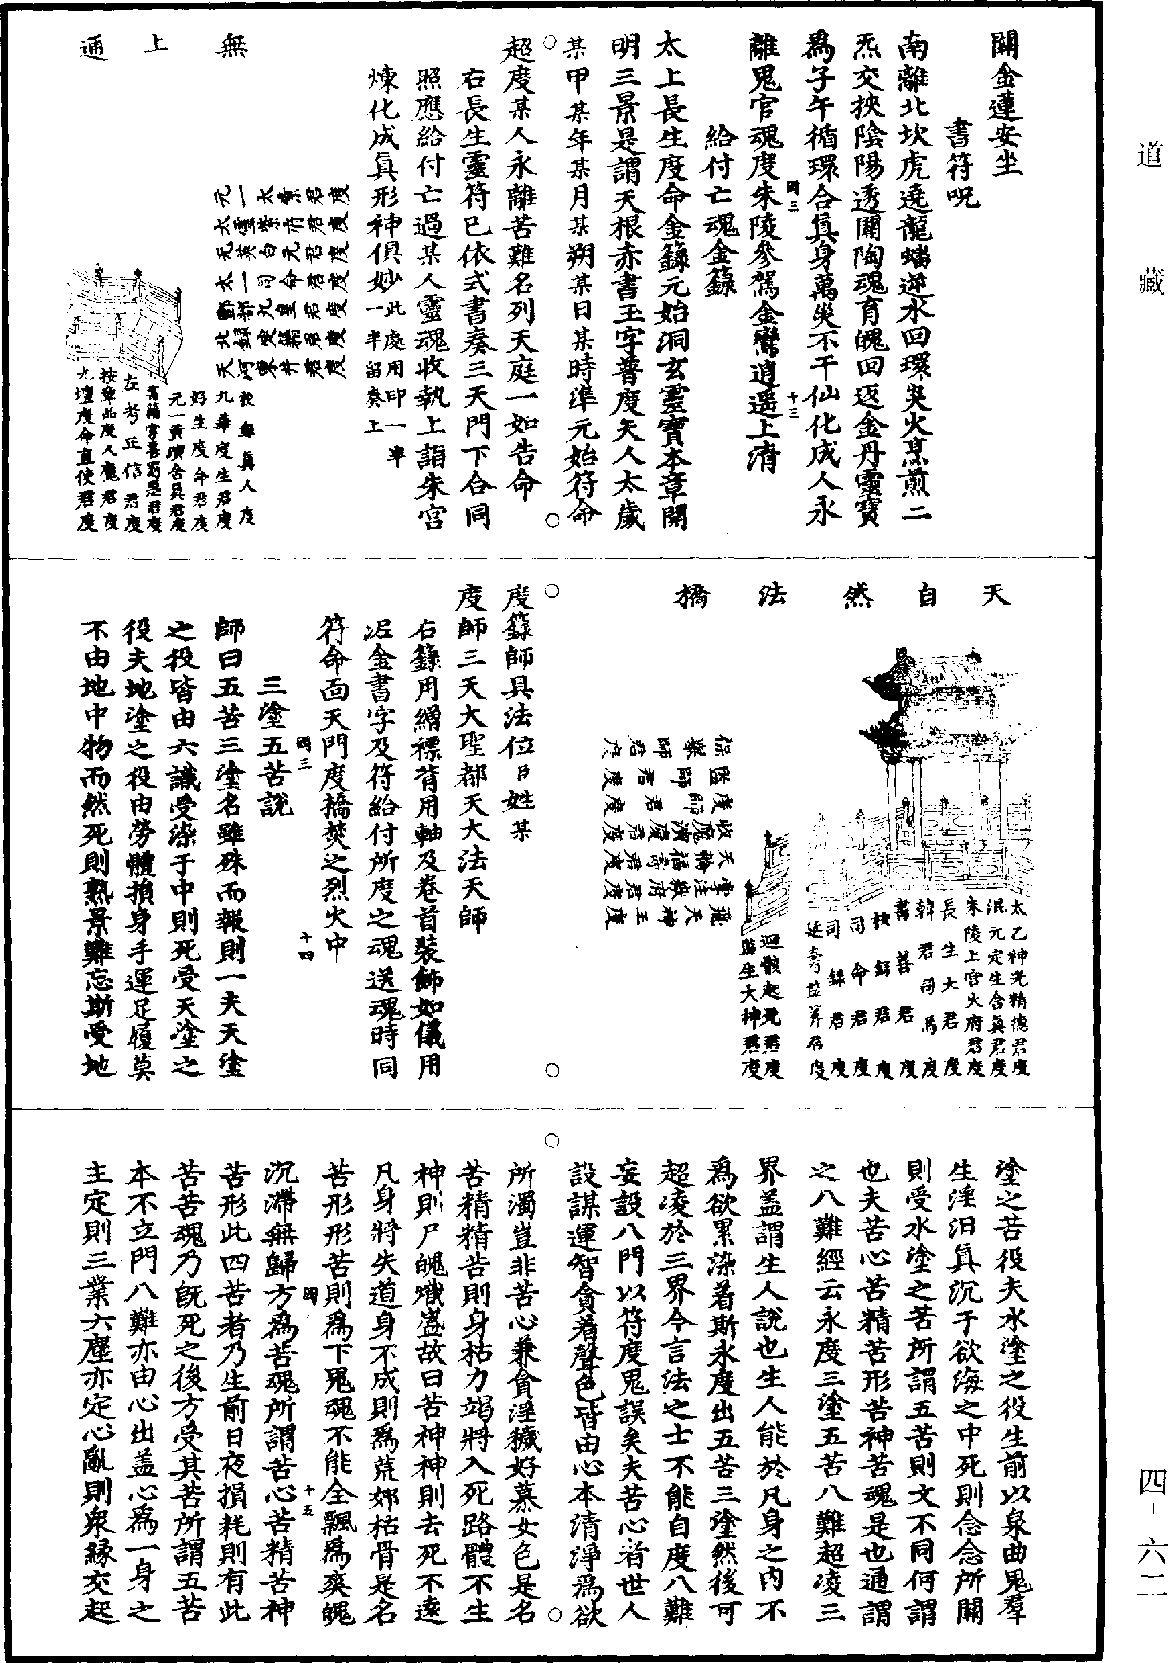 道藏
四-六二
關金蓮安坐
書符呪
南離北坎虎遶龍蟠逆水回環昊火烹煎二
炁交挾陰陽透關陶魂育魄回返金丹靈寶
為子午循環合真身萬災不干仙化成人永
離鬼官魂度朱陵參駕金鸞逍遥上清
給付亡魂金籙
太上長生度命金籙元始洞玄靈寶本章開
明三景是謂天根赤書玉字普度天人太歲
某甲某年某月某朔某日某時準元始符命
超度某人永離苦難名列天庭一如告命
右長生靈符已依式書奏三天門下合同
照應給付亡過某人靈魂收執上詣朱宮
煉化成真形神俱妙此處用印一半
一半留奏上
無上通
天自然法橋
太乙神光精德君度
混元定生含真君度
朱陵上宮火府君度
長生大君度
韓君司馬度
書善君度
校錄君度
司命君度
司錄君度
延壽益筭君度
迴骸起死君度
監生大神君度
度籙師具法位臣姓某
度師三天大聖都天大法天師
右籙用繒褾背用軸及卷首裝飾如儀用
泥金書字及符給付所度之魂送魂時同
符命面天門度橋焚之烈火中
三塗五苦說
師曰五苦三塗名雖殊而報則一夫天塗
之役皆由六識受染于中則死受天塗之
役夫地塗之役由勞體損身手運足履莫
不由地中物而然死則熟景難忘斯受地
塗之苦役夫水塗之役生前以泉曲鬼羣
生淫汩真沉于欲海之中死則念念所關
則受水塗之苦所謂五苦則文不同何謂
也夫苦心苦精苦形苦神苦魂是也通謂
之八難經云永度三塗五苦八難超凌三
界盖謂生人說也生人能於凡身之内不
為欲累染着斯永度出五苦三塗然後可
超凌於三界今言法之士不能自度八難
妄設八門以符度鬼誤矣夫苦心者世人
設謀運智貪着聲色皆由心本清淨為欲
所濁豈非苦心兼貪淫穢好慕女色是名
苦精精苦則身枯力竭將入死路體不生
神則尸魄熾盛故曰苦神神則去死不遠
凡身將失道身不成則為荒郊枯骨是名
苦形形苦則為下鬼魂不能全飄為爽魄
沉滯無歸方為苦魂所謂苦心苦精苦神
苦形此四苦者乃生前日夜損耗則有此
苦苦魂乃既死之後方受其苦所謂五苦
本不立門八難亦由心出盖心為一身之
主定則三業六塵亦定心亂則衆緣交起